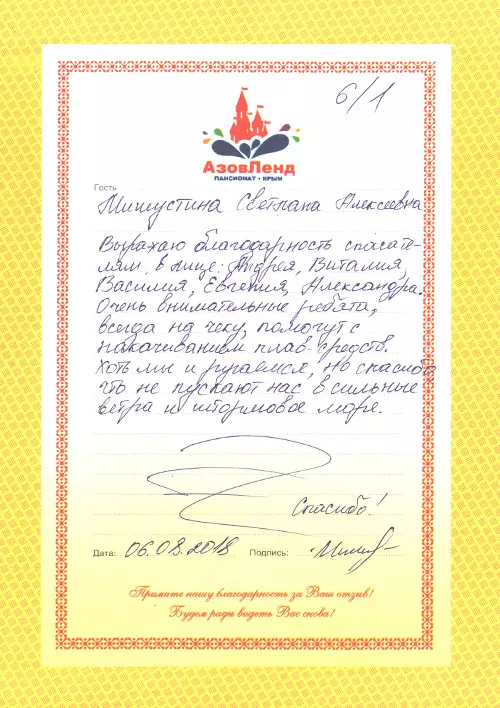 6/1
АзовЛенд
ПАНСИОНАТ • КРЫМ
Гость
Мишустина Светлана Алексеевна
Выражаю благодарность спасате-
лям, в лице: Андрея, Виталия,
Василия, Евгения, Александра.
Очень внимательные ребята,
всегда на чеку, помогут с
накачиванием плав. средств.
Хоть мы и ругаемся, но спасибо,
что не пускают нас в сильные
ветра и штормовое море.
Спасибо!
Дата: 06.08.2018 Подпись:
Примите нашу благодарность за Ваш отзыв!
Будем рады видеть Вас снова!